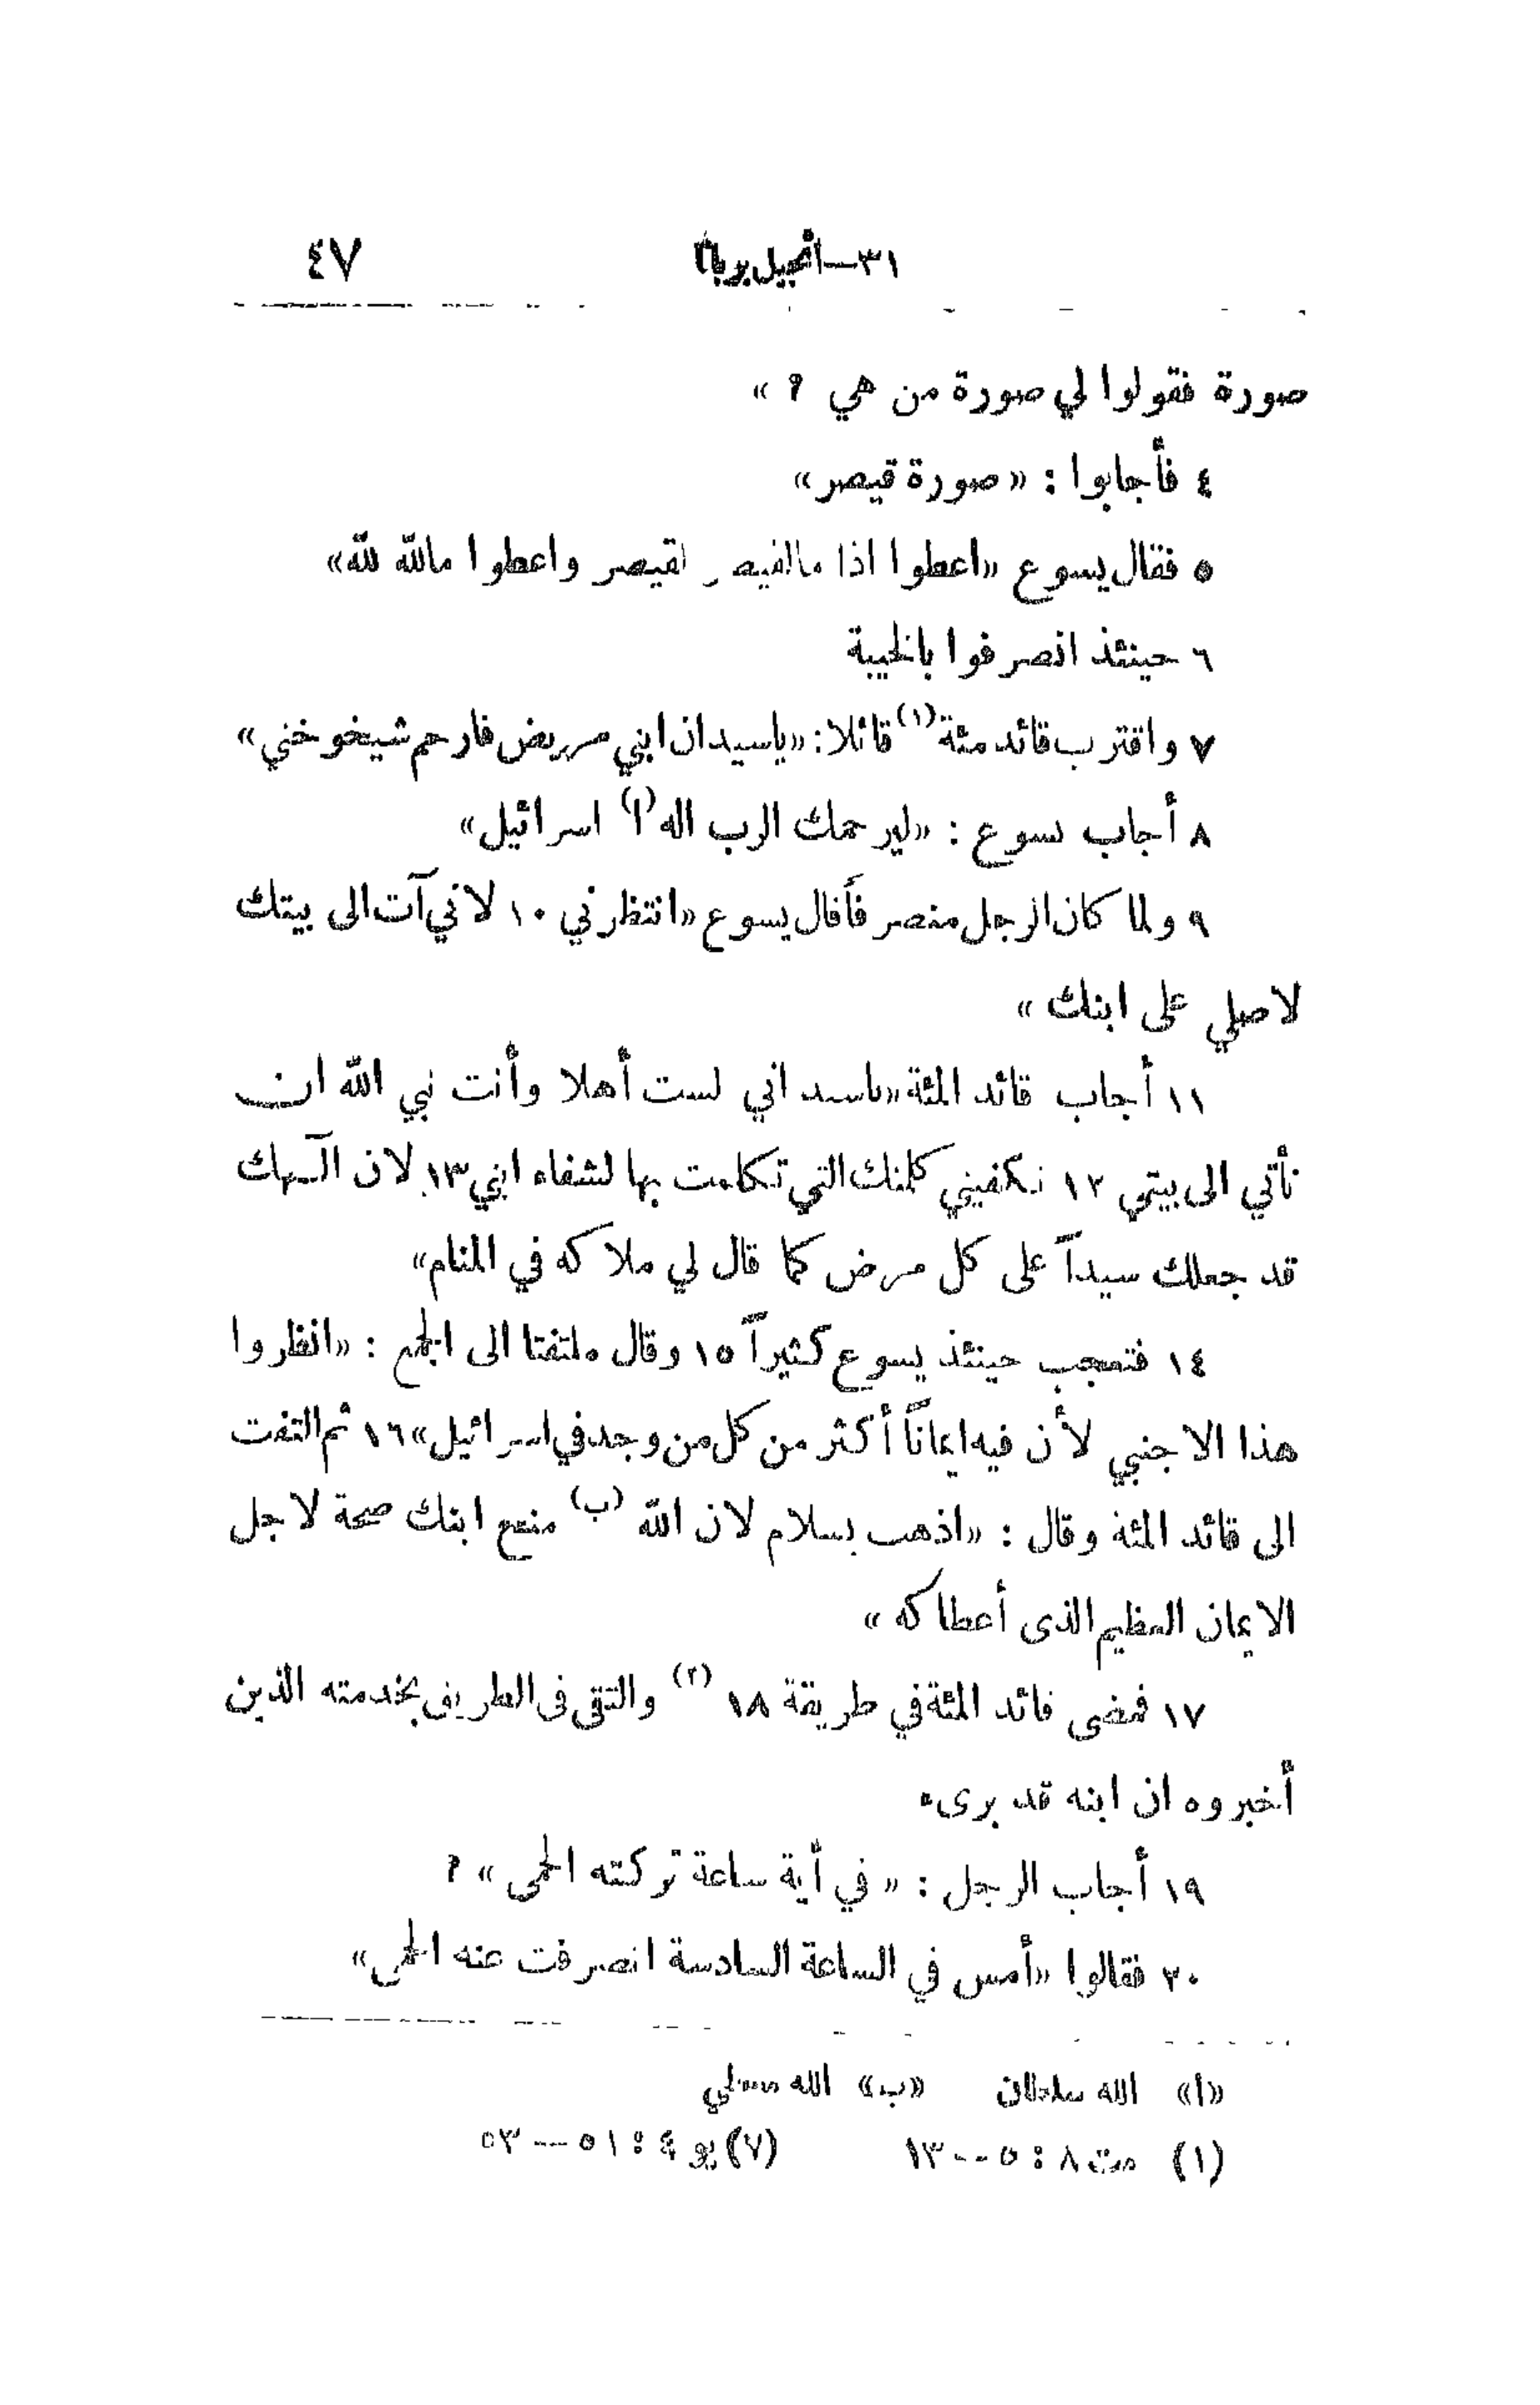 ٣١—انجيل برنابا ٤٧
صورة فقولوا لي صورة من هي ؟ »
٤ فأجابوا : « صورة قيصر»
٥ فقال يسوع «اعطوا اذا مالقيصر لقيصر واعطوا مالله لله»
٦ حينئذ انصرفوا بالخيبة
٧ واقترب قائد مئة (١) قائلا: «ياسيد ان ابني مريض فارحم شيخوختي»
٨ أجاب يسوع : «ليرحمك الرب اله (ا) اسرائيل»
٩ ولما كان الرجل منصرفاً قال يسوع «انتظرني ١٠ لاني آت الى بيتك
لاصلي على ابنك »
١١ أجاب قائد المئة «ياسيد اني لست أهلا وأنت نبي الله ان
تأتي الى بيتي ١٢ تكفيني كلمتك التي تكلمت بها لشفاء ابني ١٣ لان الآهك
قد جعلك سيداً على كل مرض كما قال لي ملاكه في المنام»
١٤ فتعجب حينئذ يسوع كثيراً ١٥ وقال ملتفتا الى الجمع : «انظروا
هذا الاجنبي لأن فيه ايماناً أكثر من كل من وجد في اسرائيل» ١٦ ثم التفت
الى قائد المئة وقال : «اذهب بسلام لان الله (ب) منح ابنك صحة لاجل
الايمان العظيم الذى أعطاكه »
١٧ فمضى قائد المئة في طريقة ١٨ (٢) والتقى فى الطريق بخدمته الذين
أخبروه ان ابنه قد برىء
١٩ أجاب الرجل : « في أية ساعة تركته الحمى » ؟
٢٠ فقالوا «أمس في الساعة السادسة انصرفت عنه الحمى»
«ا» الله سلطان «ب» الله
(١) مت ٨ : ٥--١٣ (٧) يو ٤ : ٥١--٥٣